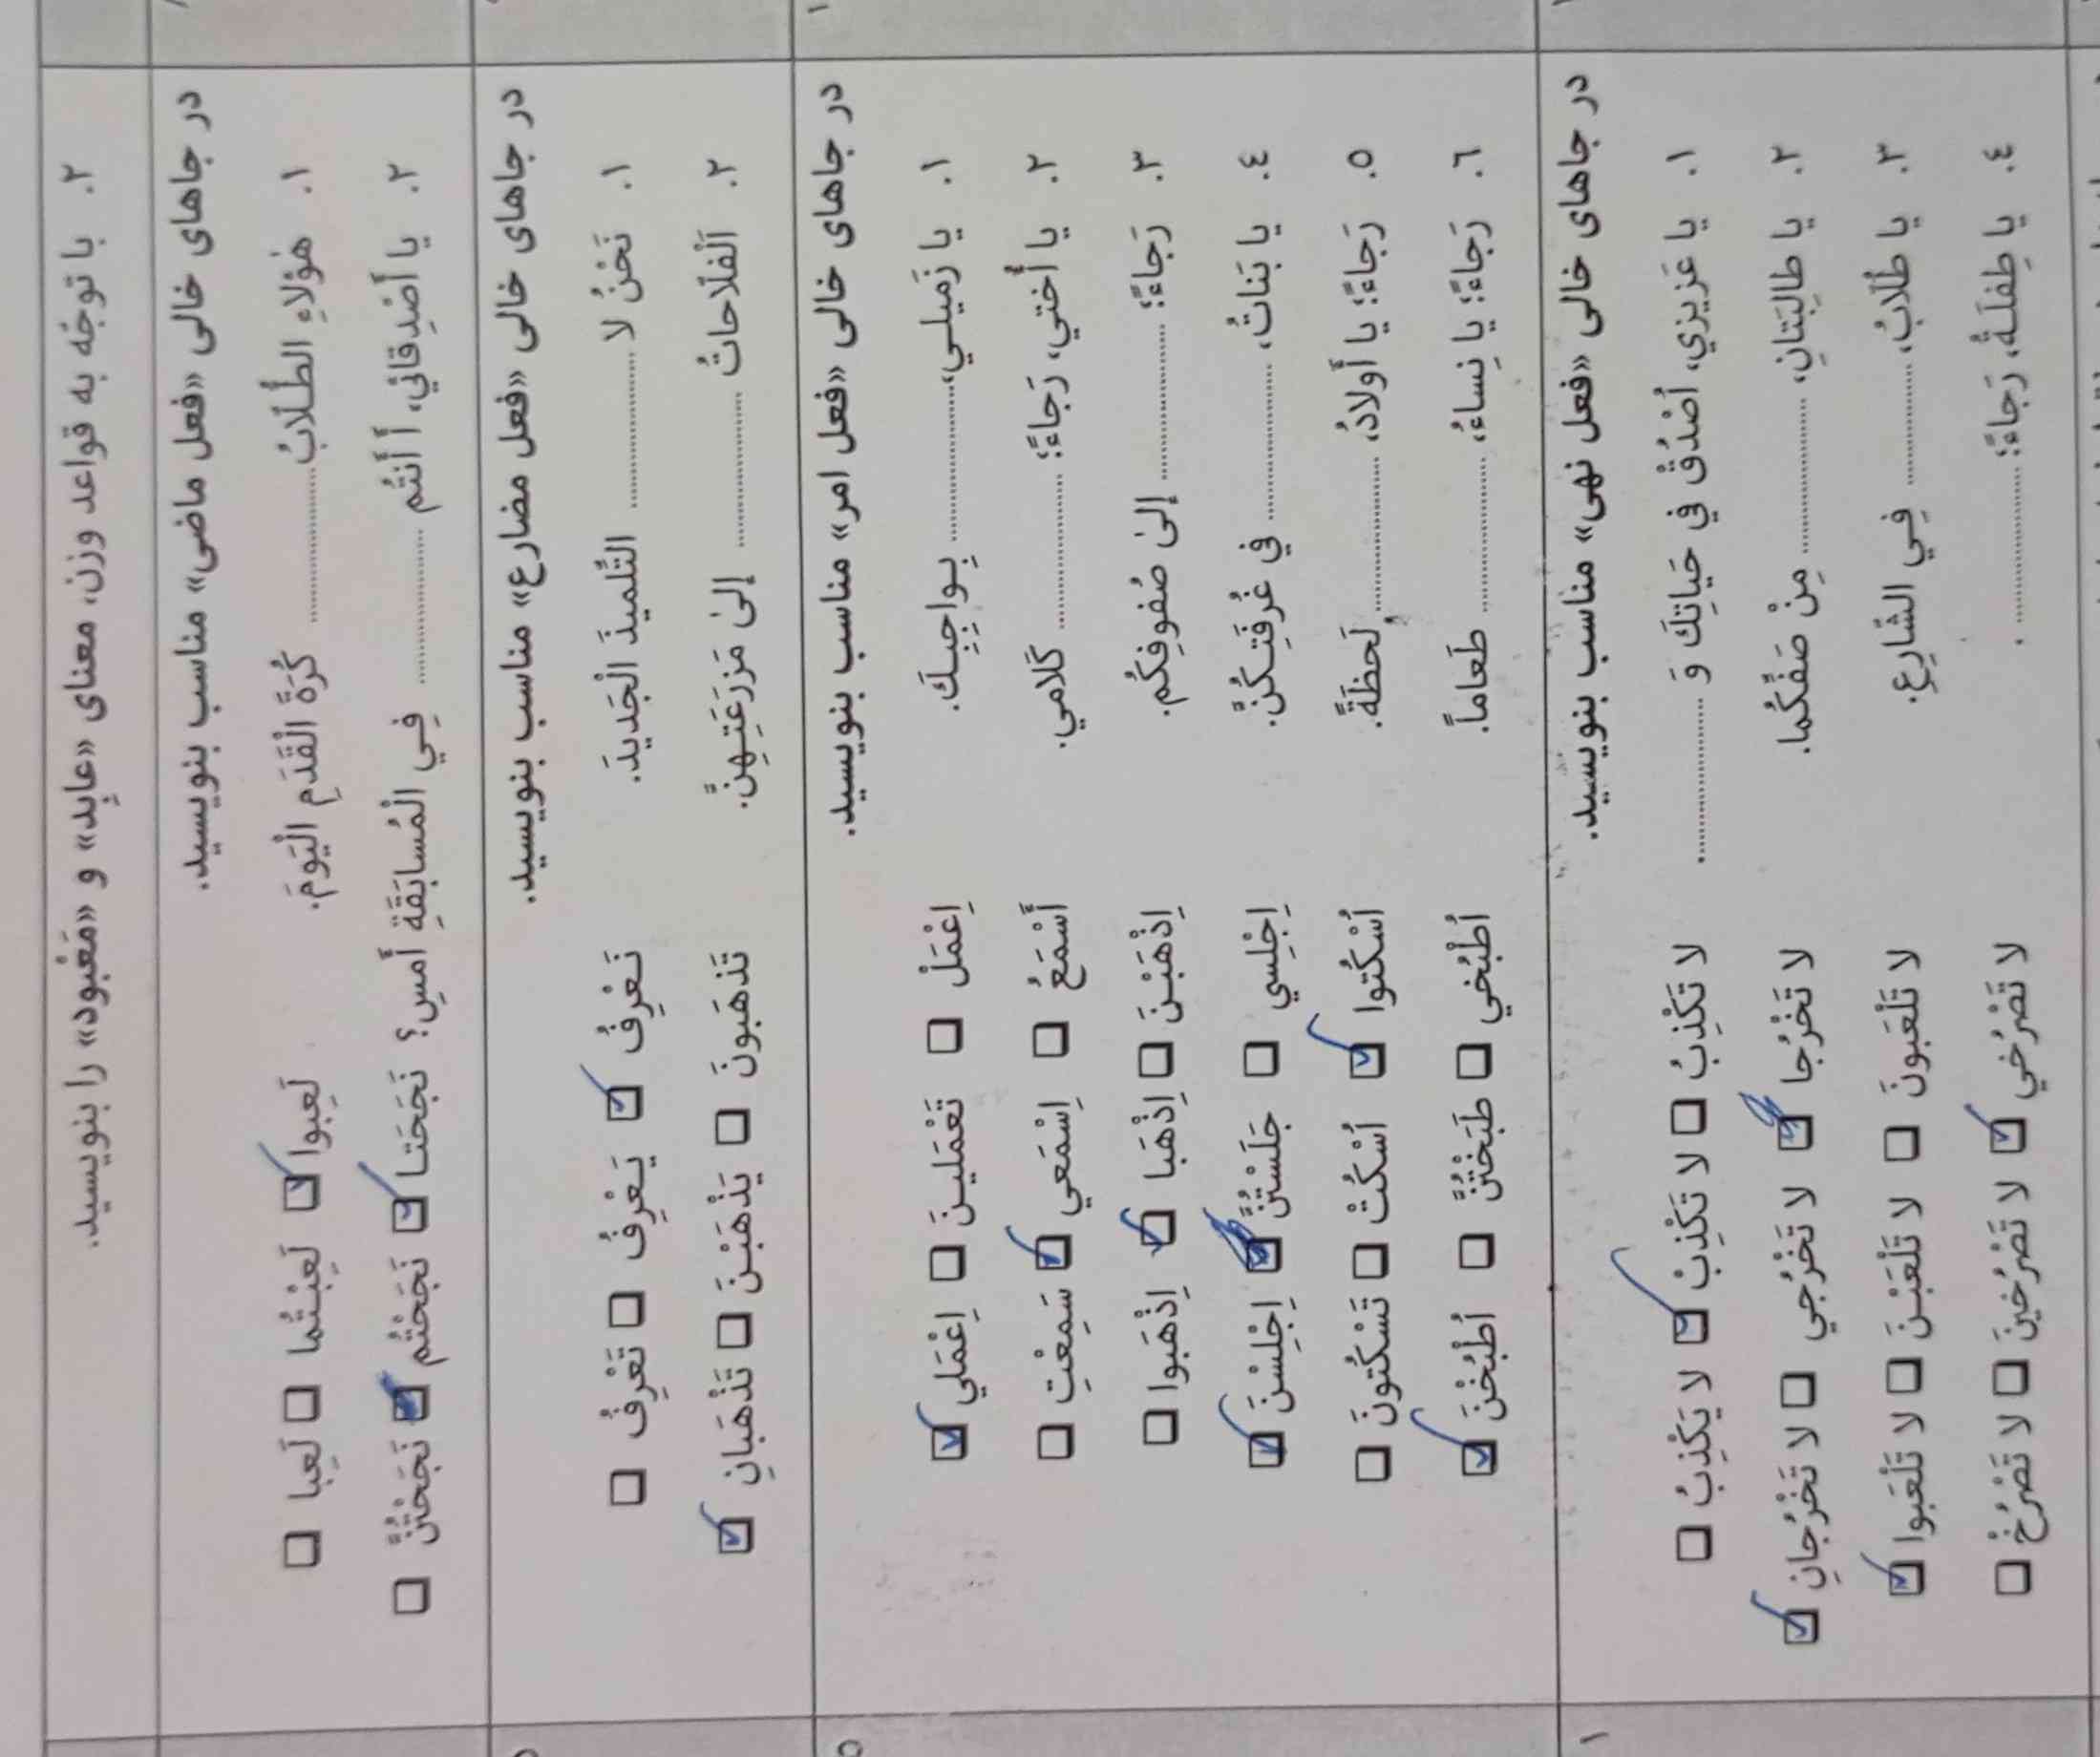 ۲. با توجّه به قواعد وزن، معنای «عابِد» و «مَعْبود» را بنویسید.
در جاهای خالی «فعل ماضی» مناسب بنویسید.
۱. هٰؤلاءِ الطُّلّابُ .......... كُرَةَ الْقَدَمِ الْيَومَ. لَعِبوا ☑ لَعِبْتُما ☐ لَعِبا ☐
۲. يا أَصْدِقائي، أ أَنتُم .......... فِي الْمُسابَقَةِ أَمسِ؟ نَجَحَتا ☑ نَجَحْتُم ☑ نَجَحْتُنَّ ☐
در جاهای خالی «فعل مضارع» مناسب بنویسید.
۱. نَحْنُ لا .......... التِّلميذَ الْجَديدَ. نَعْرِفُ ☑ يَعْرِفُ ☐ تَعْرِفُ ☐
۲. اَلْفَلّاحاتُ .......... إلیٰ مَزرَعَتِهِنَّ. تَذهَبونَ ☐ يَذْهَبْنَ ☐ تَذْهَبانِ ☑
در جاهای خالی «فعل امر» مناسب بنویسید.
۱. يا زَميلي، .......... بِواجِبِكَ. اِعْمَلْ ☐ تَعْمَلينَ ☐ اِعْمَلي ☑
۲. يا أُختي، رَجاءً؛ .......... كَلامي. أَسْمَعُ ☐ اِسْمَعي ☑ سَمِعْتِ ☐
۳. رَجاءً؛ .......... إلیٰ صُفوفِكُم. اِذْهَبْنَ ☐ اِذْهَبا ☑ اِذْهَبوا ☐
٤. يا بَناتُ، .......... في غُرفَتِكُنَّ. اِجْلِسي ☐ جَلَسْتُنَّ ☑ اِجْلِسْنَ ☑
٥. رَجاءً؛ يا أَولادُ، .......... لَحظَةً. اُسْكُتوا ☑ اُسْكُتْ ☐ تَسْكُتونَ ☐
٦. رَجاءً؛ يا نِساءُ، .......... طَعاماً. اُطْبُخي ☐ طَبَخْتُنَّ ☐ اُطْبُخْنَ ☑
در جاهای خالی «فعل نهی» مناسب بنویسید.
۱. يا عَزيزي، اُصْدُقْ في حَياتِكَ وَ .......... . لا تَكْذِبُ ☐ لا تَكْذِبْ ☑ لا يَكْذِبُ ☐
۲. يا طالِبَتانِ، .......... مِنْ صَفِّكُما. لا تَخْرُجا ☑ لا تَخْرُجي ☐ لا تَخْرُجانِ ☑
۳. يا طُلّابُ، .......... فِي الشّارِعِ. لا تَلْعَبونَ ☐ لا تَلْعَبْنَ ☐ لا تَلْعَبوا ☑
٤. يا طِفلَةُ، رَجاءً؛ .......... . لا تَصْرُخي ☑ لا تَصْرُخينَ ☐ لا تَصْرُخْ ☐